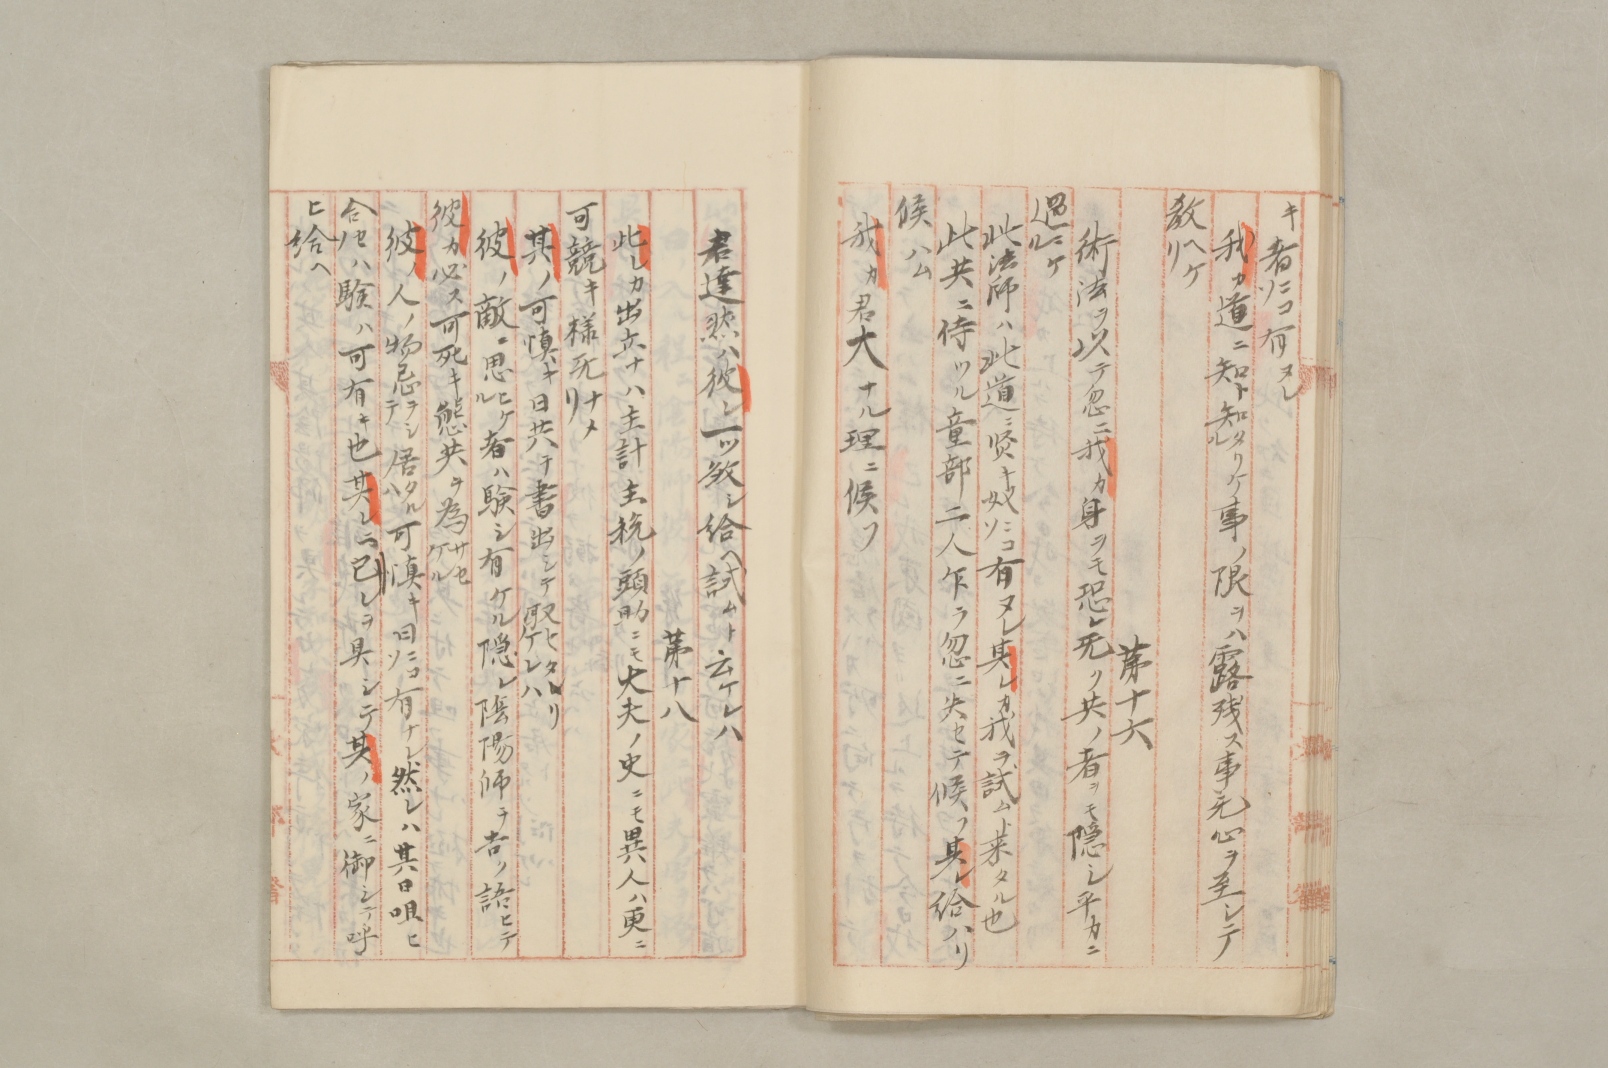 キ者ソニコ有ヌレ
我カ道ニ知ト知タリケル事ノ限ヲハ露残ス事无心ヲ至シテ
教ヘケリ
第十六
術法ヲ以テ忽ニ我カ身ヲモ恐レ无ク共ノ者ヲモ隠シ平カニ
過ニケル
此法師ハ此道ニ賢キ奴ソニコ有ヌレ其レカ我ヲ試ムト来タル也
此共ニ侍ツル童部二人乍ラ忽ニ失セテ候フ其レ給ハリ
候ハム
我カ君大ナル理ニ候フ
君達然ハ彼レ一ツ煞シ給ヘ試ムト云ケレハ
第十八
此レカ出立ナハ主計主税ノ頭助ニモ大夫ノ史ニモ異人ハ更ニ
可競キ様无ナメリ
其ノ可慎キ日共テ書出シテ取セタリケレハ
彼ノ敵ニ思ヒケル者ハ験シ有ケル隠レ陰陽師ヲ吉ク語ヒテ
彼カ必ス可死キ態共ヲ為サセケル
彼ノ人ノ物忌ヲシテ居タルハ可慎キ日ソニコ有ナレ然レハ其日咀ヒ
合セハ験ハ可有キ也其レニ己レヲ具シテ其ノ家ニ御シテ呼
ヒ給ヘ